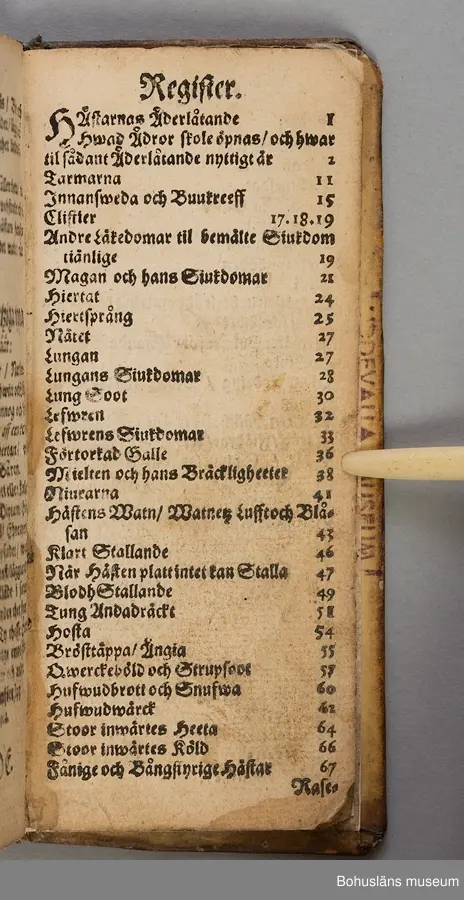 Register.
HÄstarnas Åderlåtande 1
Hwad Ådror skole öpnas/ och hwar
til sådant Åderlåtande nyttigt är 2
Tarmarna 11
Innansweda och Buukreeff 15
Clistier 17.18.19
Andre Läkedomar til bemälte Siukdom
tiänlige 19
Magan och hans Siukdomar 21
Hiertat 24
Hiertsprång 25
Nätet 27
Lungan 27
Lungans Siukdomar 28
Lung Soot 30
Lefwren 32
Lefwrens Siukdomar 33
Förtorkad Galle 36
Mielten och hans Bräckligheeter 38
Niurarna 41
Hästens Watn/ Watnetz Lufft och Blå-
san 43
Klart Stallande 46
När Hästen platt intet kan Stalla 47
Blodh Stallande 49
Tung Andadräckt 51
Hosta 54
Brösttäppa/ Ängia 55
Qwerckeböld och Strupsoot 57
Hufwudbrott och Snufwa 60
Hufwudwärck 62
Stoor inwärtes Heeta 64
Stoor inwärtes Köld 66
Fånige och Bångstyrige Hästar 67
Rase-
UDDEVALLA MUSEUM
Bohusläns museum